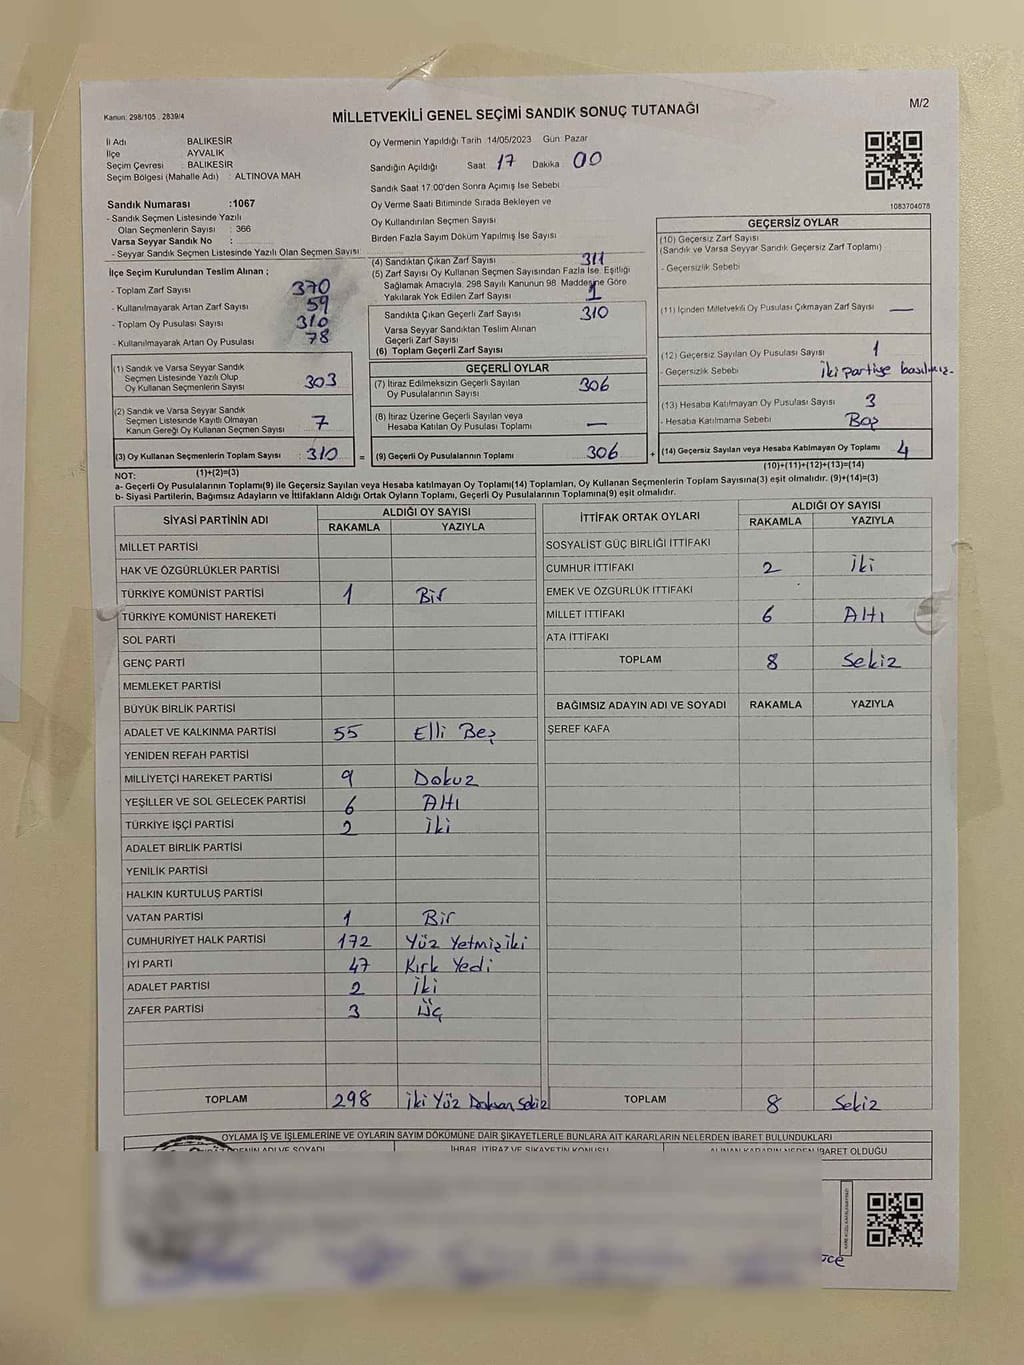 Kanun: 298/105 2839/4
MİLLETVEKİLİ GENEL SEÇİMİ SANDIK SONUÇ TUTANAĞI
M/2
İl Adı BALIKESİR
İlçe AYVALIK
Seçim Çevresi : BALIKESİR
Seçim Bölgesi (Mahalle Adı) : ALTINOVA MAH.
Oy Vermenin Yapıldığı Tarih 14/05/2023 Gün Pazar
Sandığın Açıldığı Saat 17 Dakika 00
Sandık Saat 17:00'den Sonra Açılmış İse Sebebi
Oy Verme Saati Bitiminde Sırada Bekleyen ve
Oy Kullandırılan Seçmen Sayısı
Birden Fazla Sayım Döküm Yapılmış İse Sayısı
1083704078
Sandık Numarası :1067
- Sandık Seçmen Listesinde Yazılı
Olan Seçmenlerin Sayısı : 366
Varsa Seyyar Sandık No :
- Seyyar Sandık Seçmen Listesinde Yazılı Olan Seçmen Sayısı
İlçe Seçim Kurulundan Teslim Alınan ;
- Toplam Zarf Sayısı 370
- Kullanılmayarak Artan Zarf Sayısı 59
- Toplam Oy Pusulası Sayısı 310
- Kullanılmayarak Artan Oy Pusulası 78
(1) Sandık ve Varsa Seyyar Sandık
Seçmen Listesinde Yazılı Olup
Oy Kullanan Seçmenlerin Sayısı 303
(2) Sandık ve Varsa Seyyar Sandık
Seçmen Listesinde Kayıtlı Olmayan
Kanun Gereği Oy Kullanan Seçmen Sayısı 7
(3) Oy Kullanan Seçmenlerin Toplam Sayısı : 310 =
(1)+(2)=(3)
(4) Sandıktan Çıkan Zarf Sayısı 311
(5) Zarf Sayısı Oy Kullanan Seçmen Sayısından Fazla İse Eşitliği
Sağlamak Amacıyla, 298 Sayılı Kanunun 98. Maddesine Göre
Yakılarak Yok Edilen Zarf Sayısı 1
Sandıkta Çıkan Geçerli Zarf Sayısı 310
Varsa Seyyar Sandıktan Teslim Alınan
Geçerli Zarf Sayısı
(6) Toplam Geçerli Zarf Sayısı
GEÇERLİ OYLAR
(7) İtiraz Edilmeksizin Geçerli Sayılan
Oy Pusulalarının Sayısı 306
(8) İtiraz Üzerine Geçerli Sayılan veya
Hesaba Katılan Oy Pusulası Toplamı —
(9) Geçerli Oy Pusulalarının Toplamı 306 +
GEÇERSİZ OYLAR
(10) Geçersiz Zarf Sayısı
(Sandık ve Varsa Seyyar Sandık Geçersiz Zarf Toplamı)
- Geçersizlik Sebebi
(11) İçinden Milletvekili Oy Pusulası Çıkmayan Zarf Sayısı —
(12) Geçersiz Sayılan Oy Pusulası Sayısı 1
- Geçersizlik Sebebi İki partiye basılmış.
(13) Hesaba Katılmayan Oy Pusulası Sayısı 3
- Hesaba Katılmama Sebebi Boş
(14) Geçersiz Sayılan veya Hesaba Katılmayan Oy Toplamı 4
(10)+(11)+(12)+(13)=(14)
NOT:
a- Geçerli Oy Pusulalarının Toplamı(9) ile Geçersiz Sayılan veya Hesaba katılmayan Oy Toplamı(14) Toplamları, Oy Kullanan Seçmenlerin Toplam Sayısına(3) eşit olmalıdır. (9)+(14)=(3)
b- Siyasi Partilerin, Bağımsız Adayların ve İttifakların Aldığı Ortak Oyların Toplamı, Geçerli Oy Pusulalarının Toplamına(9) eşit olmalıdır.
SİYASİ PARTİNİN ADI ALDIĞI OY SAYISI
RAKAMLA YAZIYLA
MİLLET PARTİSİ
HAK VE ÖZGÜRLÜKLER PARTİSİ
TÜRKİYE KOMÜNİST PARTİSİ 1 Bir
TÜRKİYE KOMÜNİST HAREKETİ
SOL PARTİ
GENÇ PARTİ
MEMLEKET PARTİSİ
BÜYÜK BİRLİK PARTİSİ
ADALET VE KALKINMA PARTİSİ 55 Elli Beş
YENİDEN REFAH PARTİSİ
MİLLİYETÇİ HAREKET PARTİSİ 9 Dokuz
YEŞİLLER VE SOL GELECEK PARTİSİ 6 Altı
TÜRKİYE İŞÇİ PARTİSİ 2 İki
ADALET BİRLİK PARTİSİ
YENİLİK PARTİSİ
HALKIN KURTULUŞ PARTİSİ
VATAN PARTİSİ 1 Bir
CUMHURİYET HALK PARTİSİ 172 Yüz Yetmişiki
İYİ PARTİ 47 Kırk Yedi
ADALET PARTİSİ 2 İki
ZAFER PARTİSİ 3 Üç
TOPLAM 298 İki Yüz Doksan Sekiz
İTTİFAK ORTAK OYLARI ALDIĞI OY SAYISI
RAKAMLA YAZIYLA
SOSYALİST GÜÇ BİRLİĞİ İTTİFAKI
CUMHUR İTTİFAKI 2 İki
EMEK VE ÖZGÜRLÜK İTTİFAKI
MİLLET İTTİFAKI 6 Altı
ATA İTTİFAKI
TOPLAM 8 Sekiz
BAĞIMSIZ ADAYIN ADI VE SOYADI RAKAMLA YAZIYLA
ŞEREF KAFA
TOPLAM 8 Sekiz
OYLAMA İŞ VE İŞLEMLERİNE VE OYLARIN SAYIM DÖKÜMÜNE DAİR ŞİKAYETLERLE BUNLARA AİT KARARLARIN NELERDEN İBARET BULUNDUKLARI
İHBAR, İTİRAZ VE ŞİKAYETİN KONUSU
ALINAN KARARIN NEDEN İBARET OLDUĞU